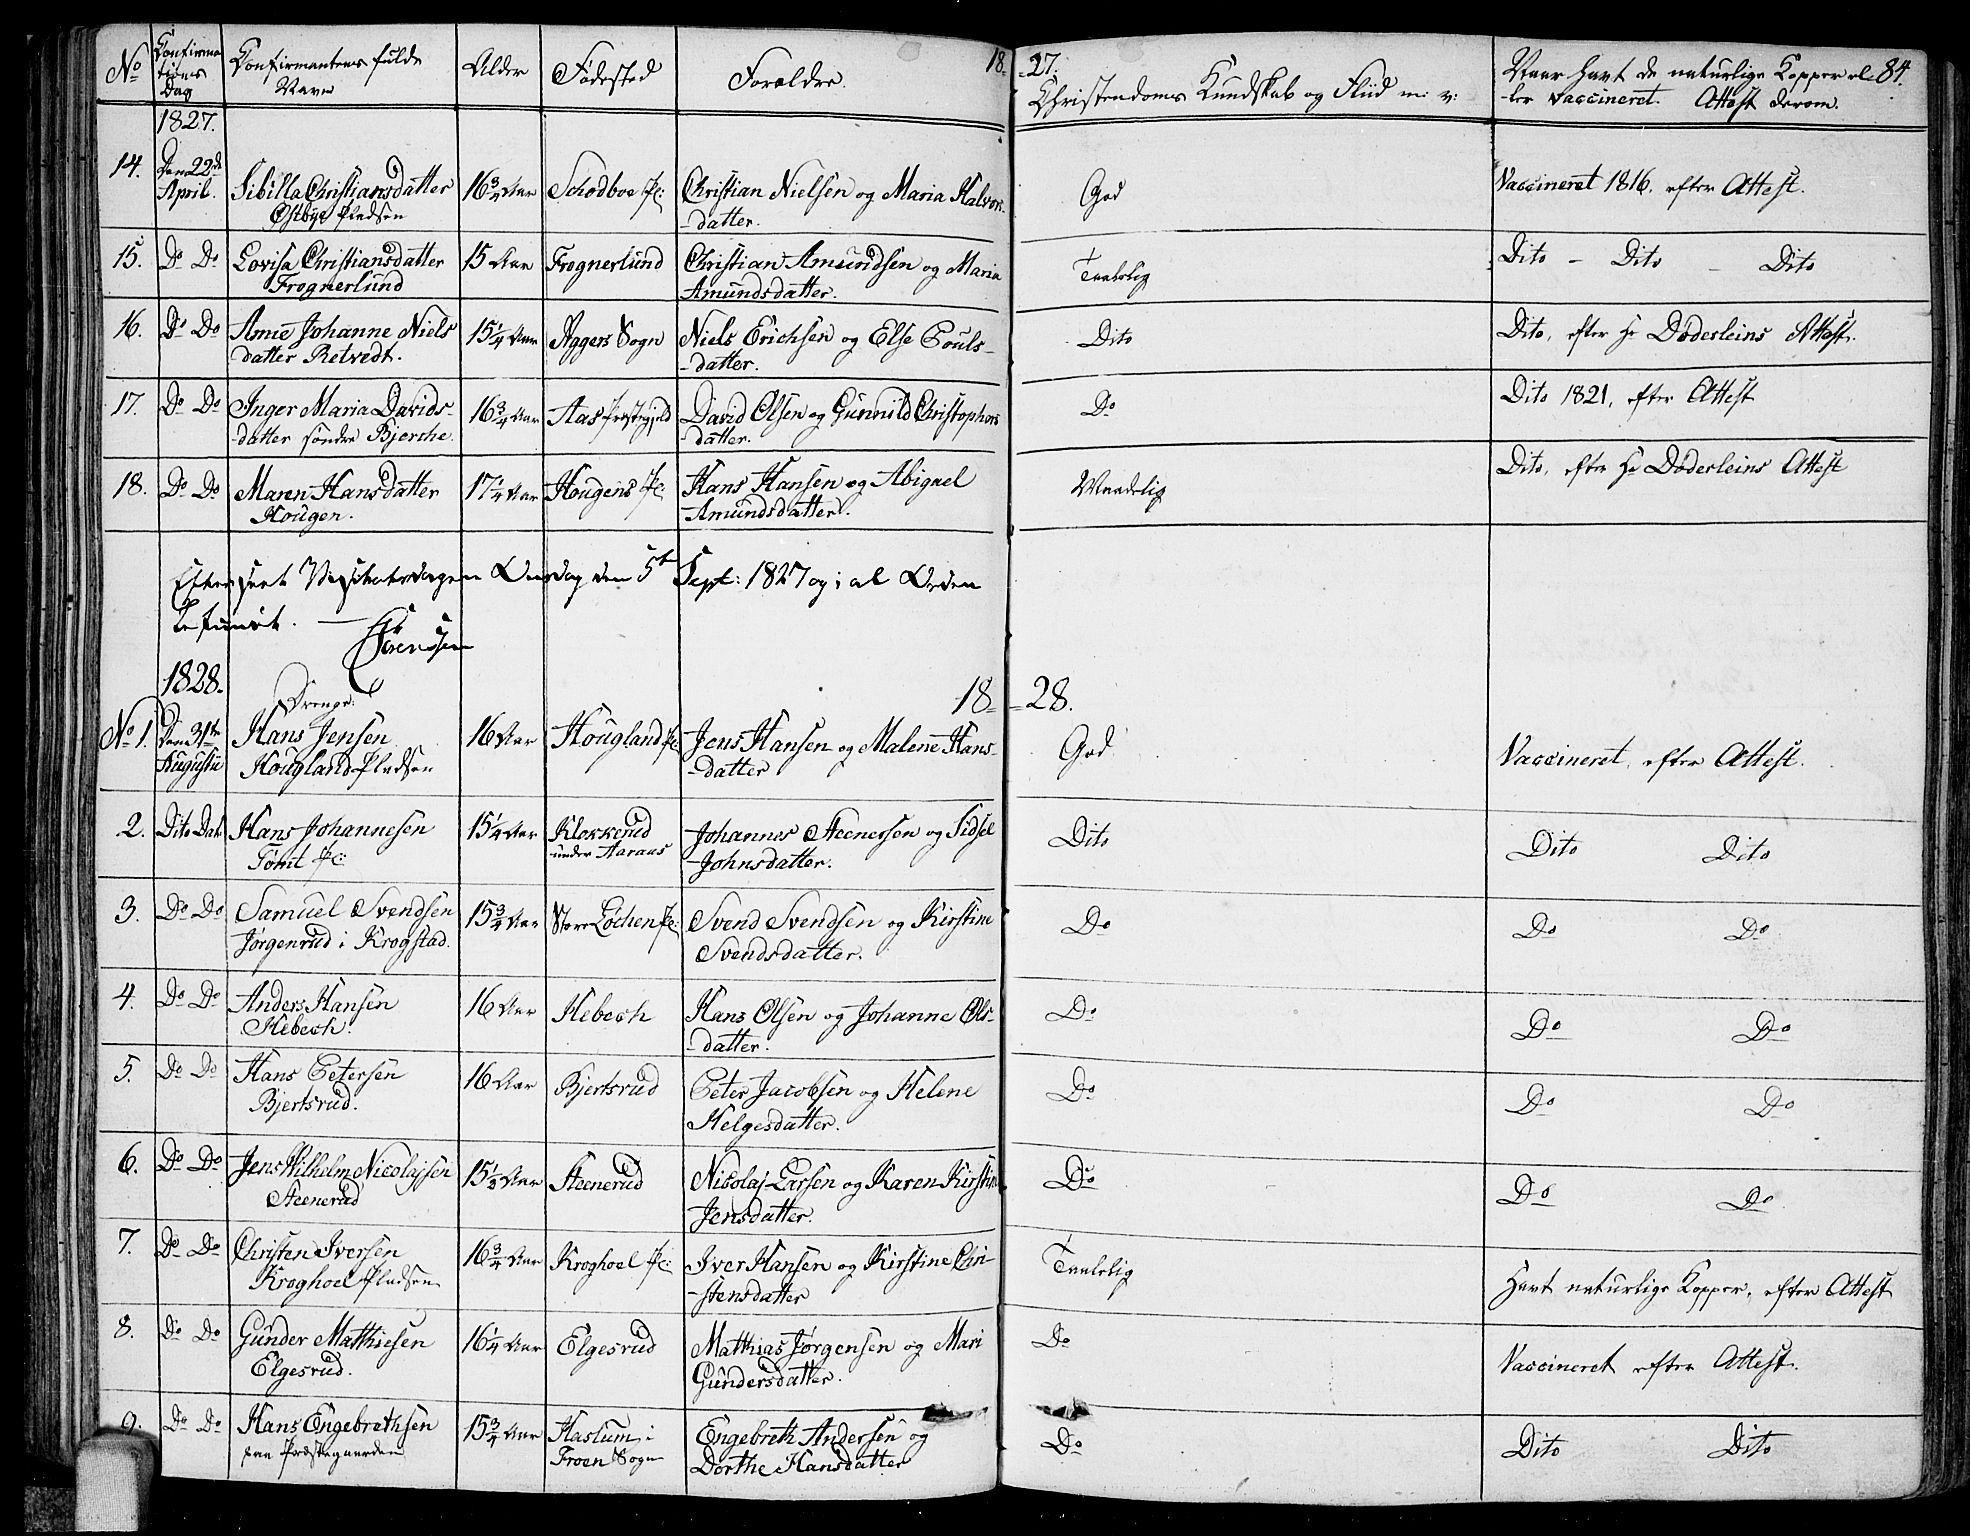 No Confirma- Confirmantens fulde Alder Fødested Forældre. 18- -27.
tions Navn Christendoms Kundskab og Fliid m: v: Naar havt de naturlige Kopper el- 84.
Dag -ler vaccineret. Attest derom.
1827.
14. Den 22de April. Sibilla Christiansdatter 16 3/4 Aar Schodboe Pl: Christian Nielsen og Maria Halvors- God Vaccineret 1816, efter Attest.
Østbye Pladsen -datter.
15. Do Do Lovisa Christiansdatter 15 Aar Frognerlund Christian Amundsen og Maria Taalelig Dito - Dito - Dito
Frognerlund Amundsdatter.
16. Do Do Anne Johanne Niels 15 1/4 Aar Aggers Sogn Niels Erichsen og Else Pouls- Dito Dito, efter Hr Døderleins Attest.
datter Retvedt. -datter.
17. Do Do Inger Maria Davids- 16 3/4 Aar Aas Præstegjeld David Olsen og Gunnild Christophers Do Dito 1821, efter Attest
-datter søndre Bjerche. -datter.
18. Do Do Maren Hansdatter 17 1/4 Aar Hougens Pl: Hans Hansen og Abigael Maadelig Dito, efter Hr Døderleins Attest
Hougen. Amundsdatter.
Efterseet Onsdag den 5te Sept: 1827 og i al Orden
befundet. Sørenssen
1828. Drenge: 18- -28.
No 1. Den 31te Augusti Hans Jensen 16 Aar Hougland Pl: Jens Hansen og Malene Hans- God Vaccineret, efter Attest.
Hougland-Pladsen -datter
2. Dito Dato Hans Johannesen 15 1/4 Aar Klokkerud Johannes Steenersen og Sidsel Dito Dito Dito
Tømt Pl: under Aaraas Johnsdatter.
3. Do Do Samuel Svendsen 15 3/4 Aar Store Løchen Pl: Svend Svendsen og Kirstine Do Do Do
Jørgenrud i Krogstad. Svendsdatter.
4. Do Do Anders Hansen 16 Aar Hebech Hans Olsen og Johanne Ols- Do Do Do
Hebech. -datter.
5. Do Do Hans Petersen 16 Aar Bjertsrud Peter Jacobsen og Helene Do Do Do
Bjertsrud. Helgesdatter.
6. Do Do Jens Wilhelm Nicolajsen 15 1/2 Aar Steenerud Nicolaj Larsen og Karen Kirstin Do Do Do
Steenerud Jensdatter.
7. Do Do Christen Iversen 16 3/4 Aar Kroghoel Pl: Iver Hansen og Kirstine Chri- Taalelig Havt naturlige Kopper, efter Attest
Kroghoel Pladsen -stensdatter
8. Do Do Gunder Mathiesen 16 1/4 Aar Elgesrud Matthias Jørgensen og Mari Do Vaccineret efter Attest.
Elgesrud. Gundersdatter.
9. Do Do Hans Engebrethsen 15 3/4 Aar Haslum i Engebreth Andersen og Do Dito Dito
paa Præstegaarden Froen Sogn Dorthe Hansdatter